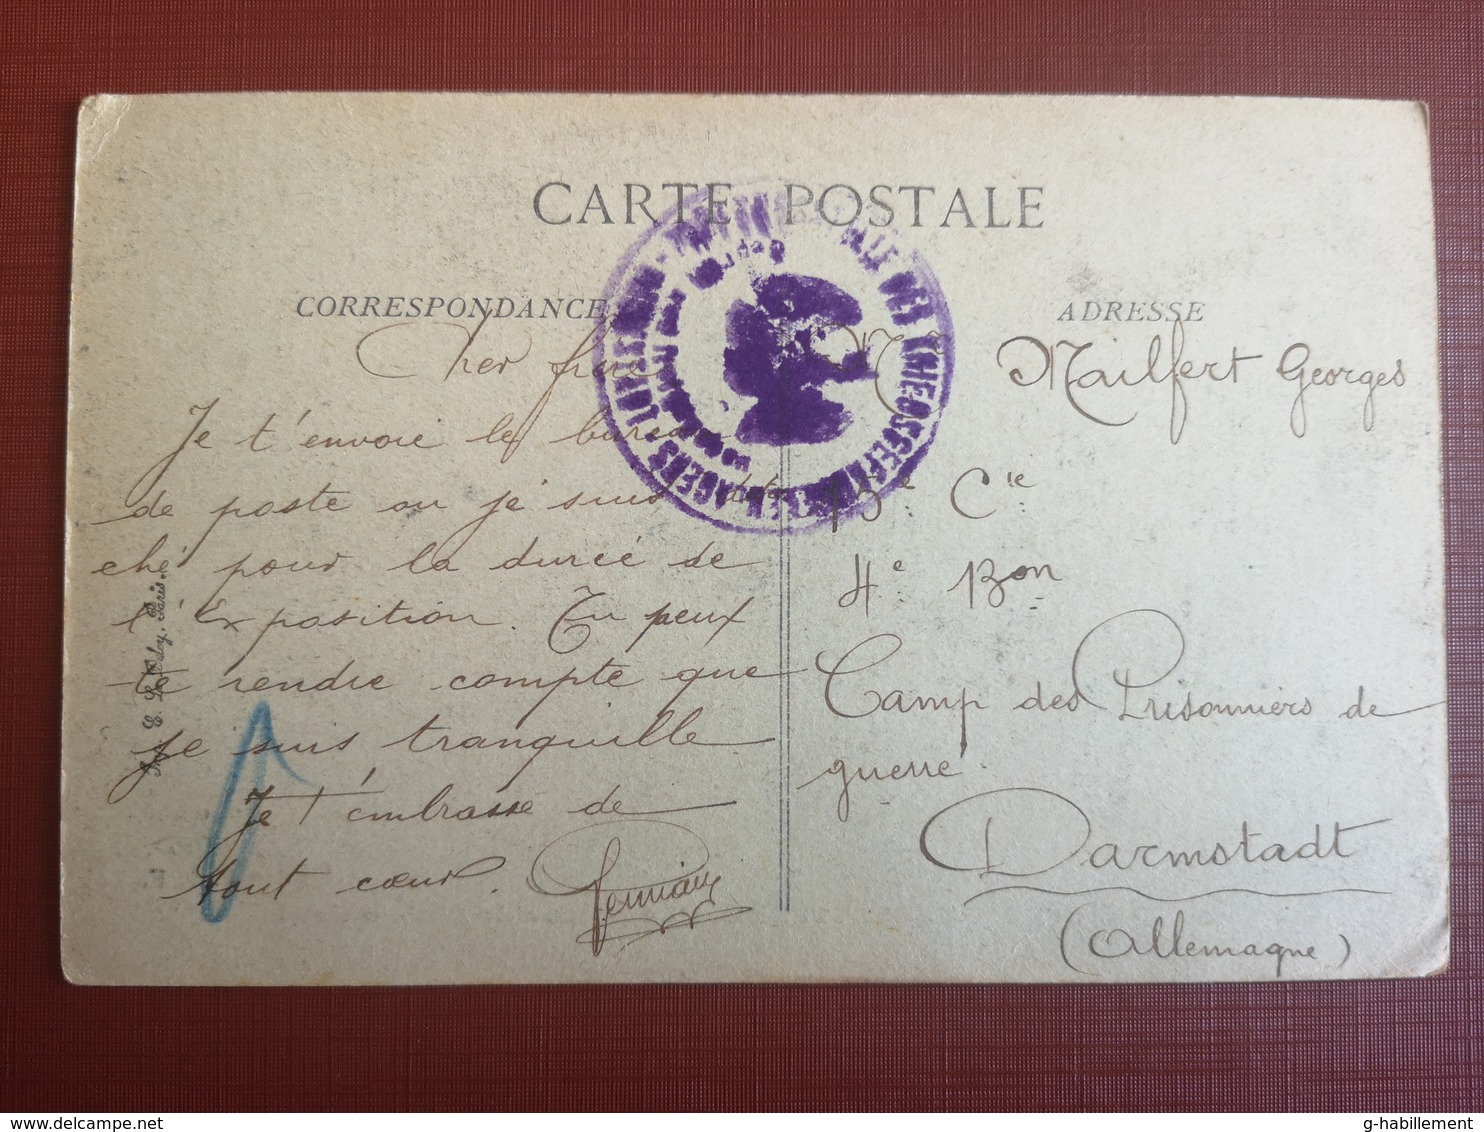 CARTE POSTALE
CORRESPONDANCE
ADRESSE
Cher frère
Je t'envoie le bureau
de poste ou je suis déta
ché pour la durée de
l'Exposition. Tu peux
te rendre compte que
je suis tranquille
Je t'embrasse de
tout cœur. Germain
Mr Mailfert Georges
13e Cie
4e Bon
Camp des Prisonniers de
guerre.
Darmstadt
(Allemagne)
DES KRIEGSGEFANGENENLAGERS
Paris.
g-habillement